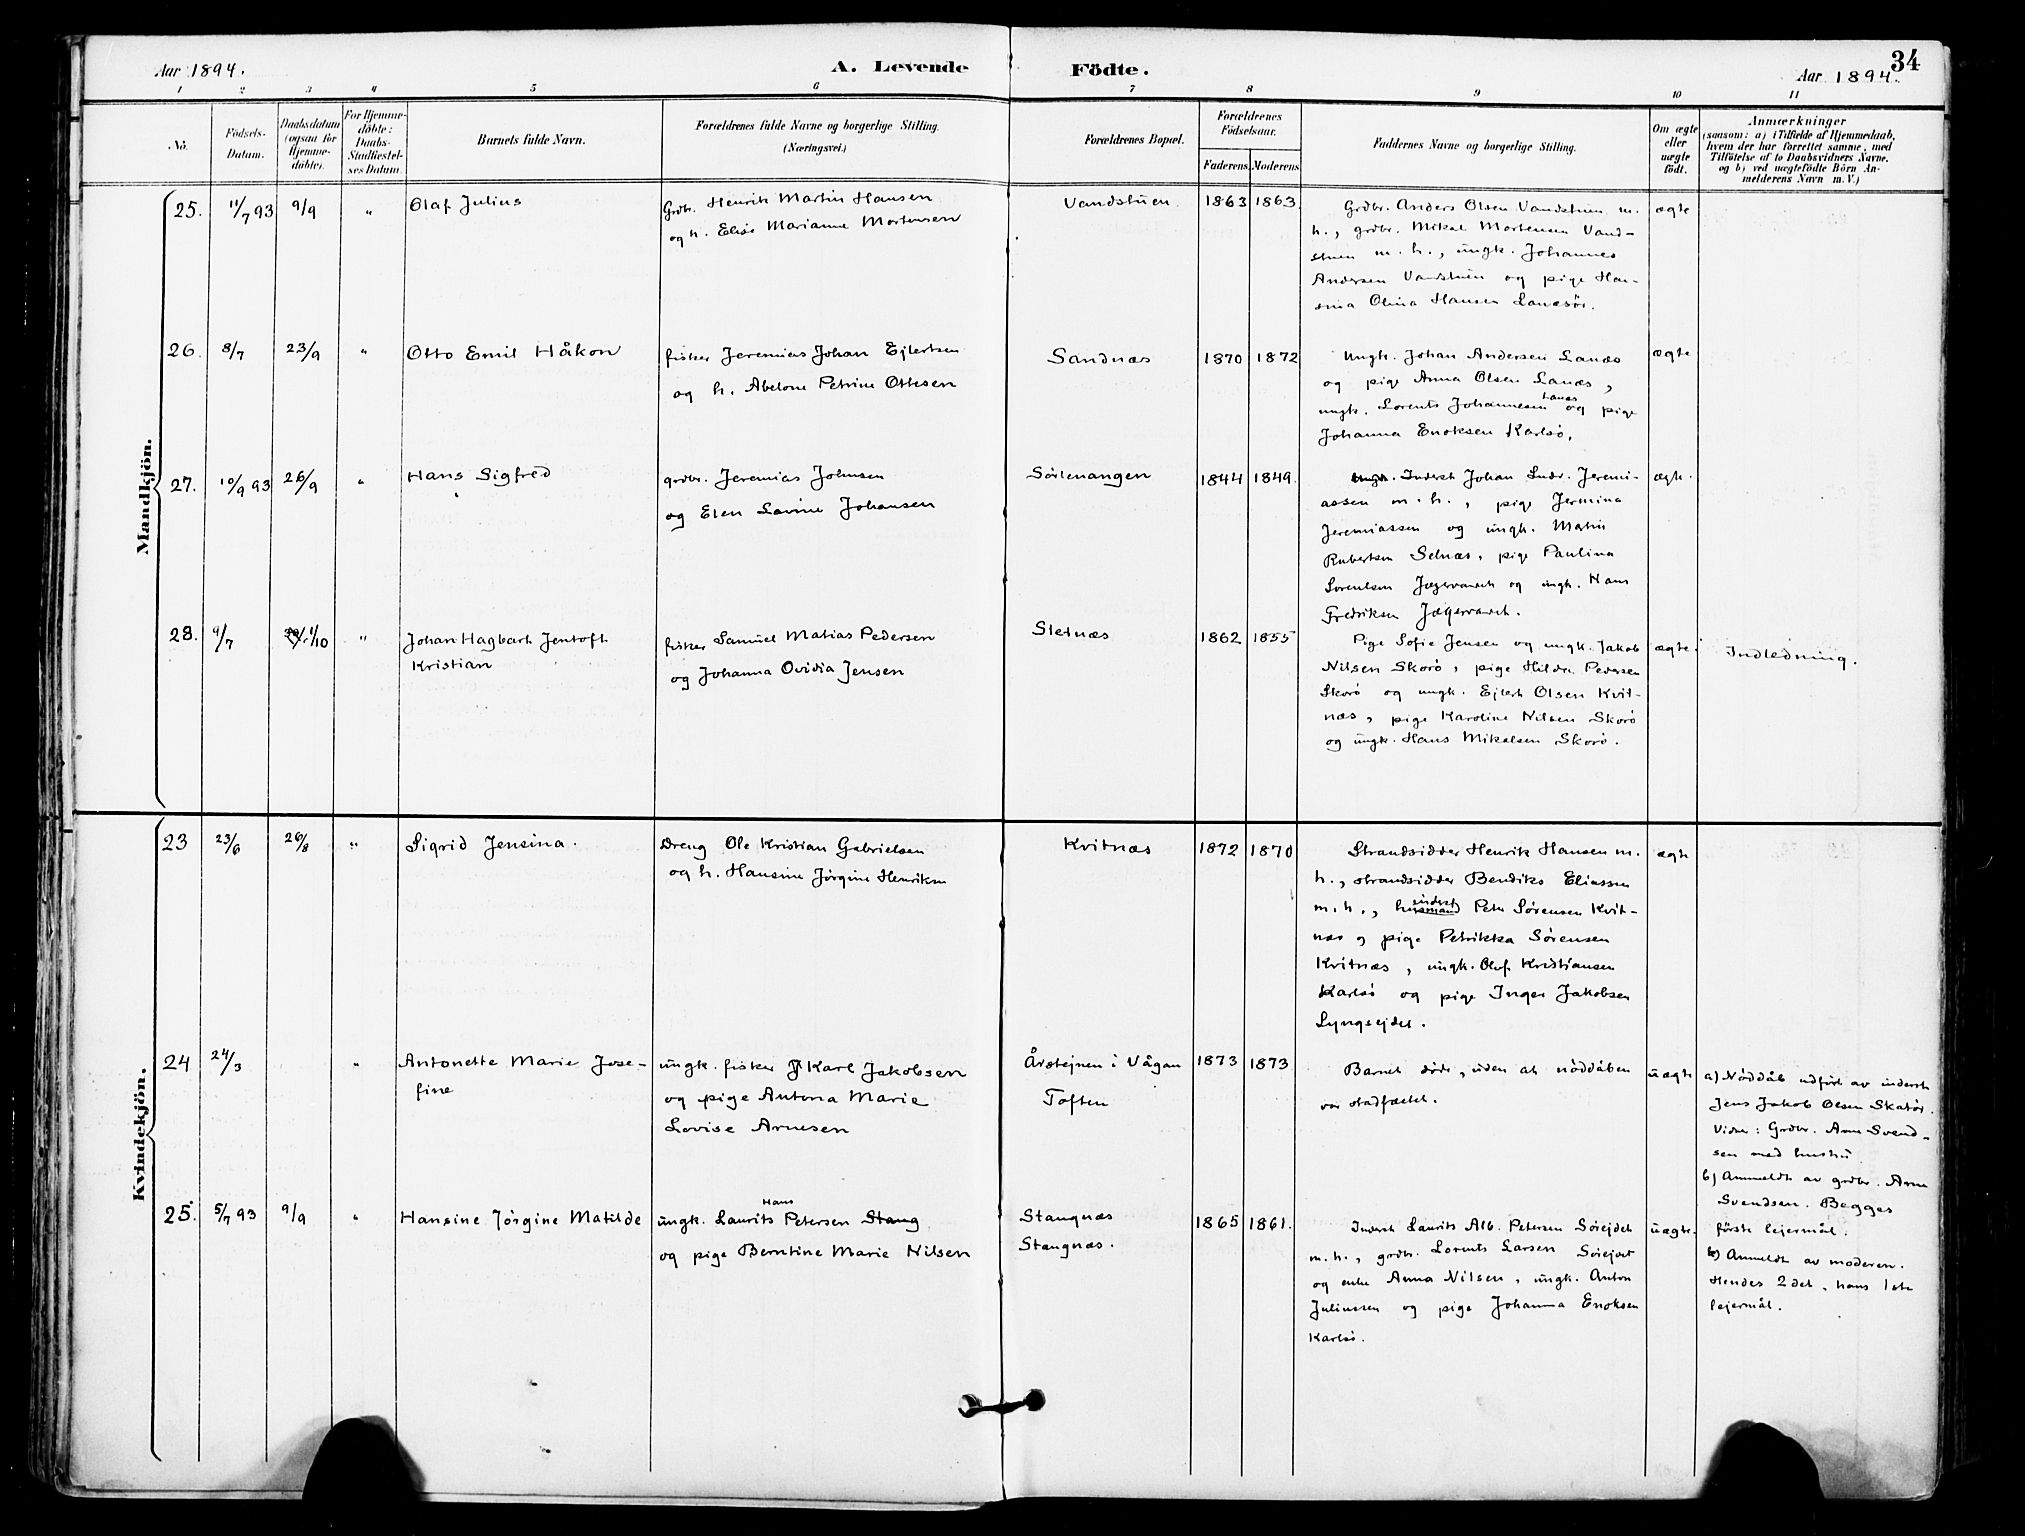 Aar 1894.
A. Levende Födte.
34
Aar 1894.
1 2 3 4 5 6 7 8 9 10 11
No.
Födsels-
Datum.
Daabsdatum
(ogsaa for
Hjemme-
döbte).
For Hjemme-
döbte:
Daabs-
Stadfæstel-
ses Datum.
Barnets fulde Navn.
Forældrenes fulde Navne og borgerlige Stilling.
(Næringsvei.)
Forældrenes Bopæl.
Forældrenes
Födselsaar.
Faderens. Moderens.
Faddernes Navne og borgerlige Stilling.
Om ægte
eller
uægte
födt.
Anmærkninger
(saasom: a) i Tilfælde af Hjemmedaab,
hvem der har forrettet samme, med
Tilföielse af to Daabsvidners Navne.
og b) ved uægtefödte Börn An-
melderens Navn m. V.)
Mandkjön.
25. 11/7 93 9/9 "
Olaf Julius
Grdbr. Henrik Martin Hansen
og h. Elise Marianne Mortensen
Vandstuen
1863 1863
Grdbr. Anders Olsen Vandstuen m.
h., grdbr. Mikal Mortensen Vand-
stuen m. h., ungk. Johannes
Andersen Vandstuen og pige Han-
sina Olina Hansen Lanesör.
ægte
26. 8/7 23/9 "
Otto Emil Håkon
fisker Jeremias Johan Ejlertsen
og h. Abelone Petrine Ottesen
Sandnæs
1870 1872
Ungk. Johan Andersen Lanæs
og pige Anna Olsen Lanæs,
ungk. Lorents Johannesen Lanæs og pige
Johanna Enoksen Karlsö.
ægte
27. 10/9 93 26/9 "
Hans Sigfred
grdbr. Jeremias Johnsen
og Elen Lavine Johansen
Sörlenangen
1844 1849.
Ungk. Inderst Johan Ludv. Jeremi-
assen m. h., pige Jermina
Jeremiassen og ungk. Martin
Rubertsen Selnæs, pige Paulina
Sorentsen Jægervatn og ungk. Hans
Fredriksen Jægervatn.
ægte.
28. 9/7 1/10 "
Johan Hagbart Jentoft
Kristian
fisker Samuel Matias Pedersen
og Johanna Ovidia Jensen
Sletnæs
1862 1855
Pige Sofie Jensen og ungk. Jakob
Nilsen Skorö, pige Hilda Pedersen
Skorö og ungk. Ejlert Olsen Kvit-
næs, pige Karoline Nilsen Skorö
og ungk. Hans Mikalsen Skorö.
ægte.
Indledning.
Kvindekjön.
23 23/6 26/8 "
Sigrid Jensina.
Dreng Ole Kristian Gabrielsen
og h. Hansine Jörgine Henriksen
Kvitnæs
1872 1870
Strandsidder Henrik Hansen m.
h., strandsidder Bendiks Eliassen
m. h., husmand inderst Peter Sörensen Kvit-
næs og pige Petrikka Sörensen
Kvitnæs, ungk. Olof Kristiansen
Karlsö og pige Inger Jakobsen
Lyngsejdet.
ægte
24 24/3 "
Antonette Marie Jose-
fine
ungk. fisker J Karl Jakobsen
og pige Antona Marie
Lovise Arnesen
Årstejnen i Vågan
Toften
1873 1873
Barnet döde, uden at nöddåben
var stadfæstet.
uægte
a) Nöddåb udfört av inderst
Jens Jakob Olsen Skatör.
Vidner: Grdbr. Arne Svend-
sen med hustru
b) Anmeldt av grdbr. Arne
Svendsen. Begges
förste lejermål.
25. 5/7 93 9/9 "
Hansine Jörgine Matilde
ungk. Laurits Hans Petersen Stang
og pige Berntine Marie Nilsen
Stangnæs
Stangnæs.
1865 1861.
Inderst Laurits Alb. Petersen Sörejdet
m. h., grdbr. Lorents Larsen Sörejdet
og enke Anna Nilsen, ungk. Anton
Juliussen og pige Johanna Enoksen
Karlsö.
uægte.
b) Anmeldt av moderen.
Hendes 2det, hans 1ste
lejermål.